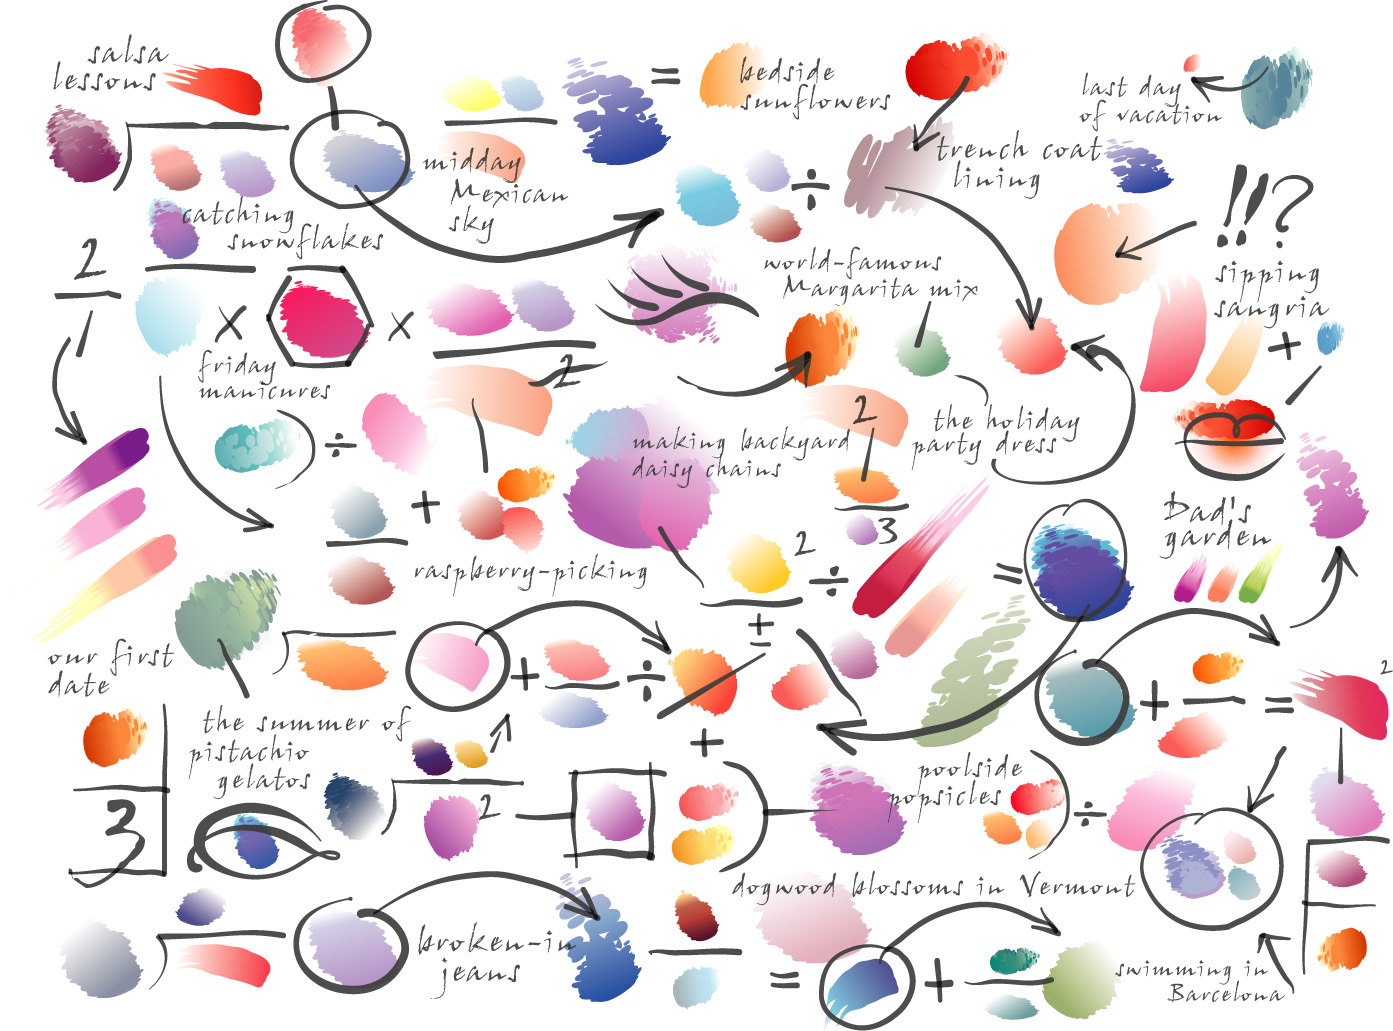 salsa
lessons
bedside
sunflowers
last day
of vacation
midday
Mexican
sky
trench coat
lining
!!?
catching
snowflakes
2
world-famous
Margarita mix
sipping
sangria
friday
manicures
2
2
the holiday
party dress
making backyard
daisy chains
3
Dad's
garden
raspberry-picking
2
our first
date
2
the summer of
pistachio
gelatos
poolside
popsicles
3
2
dogwood blossoms in Vermont
broken-in
jeans
swimming in
Barcelona